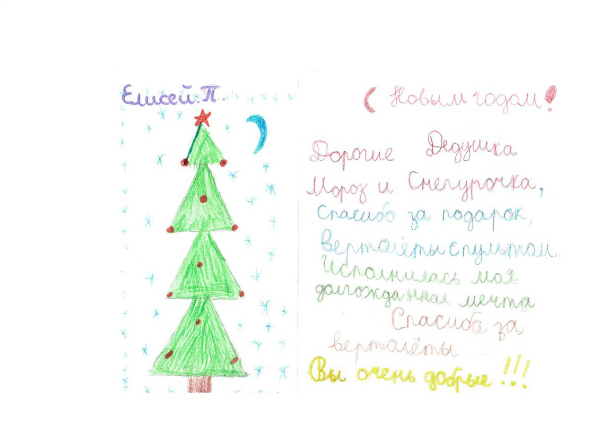 Елисей.П.
С Новым годом!
Дорогие Дедушка
Мороз и Снегурочка,
Спасибо за подарок,
вертолёты с пультом.
Исполнилась моя
долгожданная мечта
Спасиба за
вертолёты
Вы очень добрые!!!